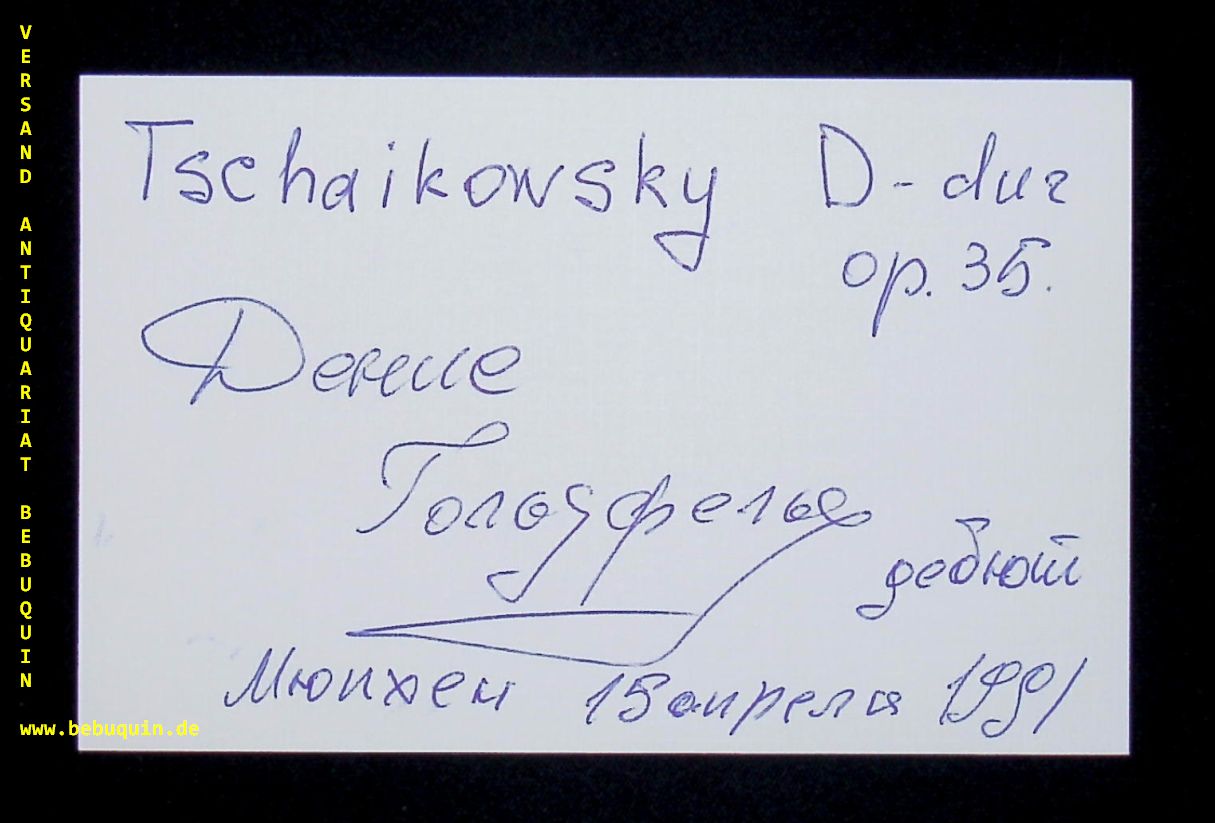 VERSAND ANTIQUARIAT BEBUQUIN
www.bebuquin.de
Tschaikowsky D-dur
op. 35.
Денис
Гольдфельд
дебют
Мюнхен 15 апреля 1991